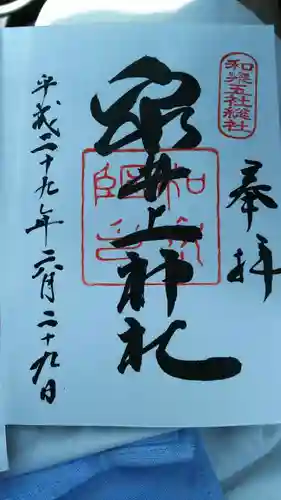 和泉五社総社
奉拝
泉井上神社
平成二十九年六月二十九日